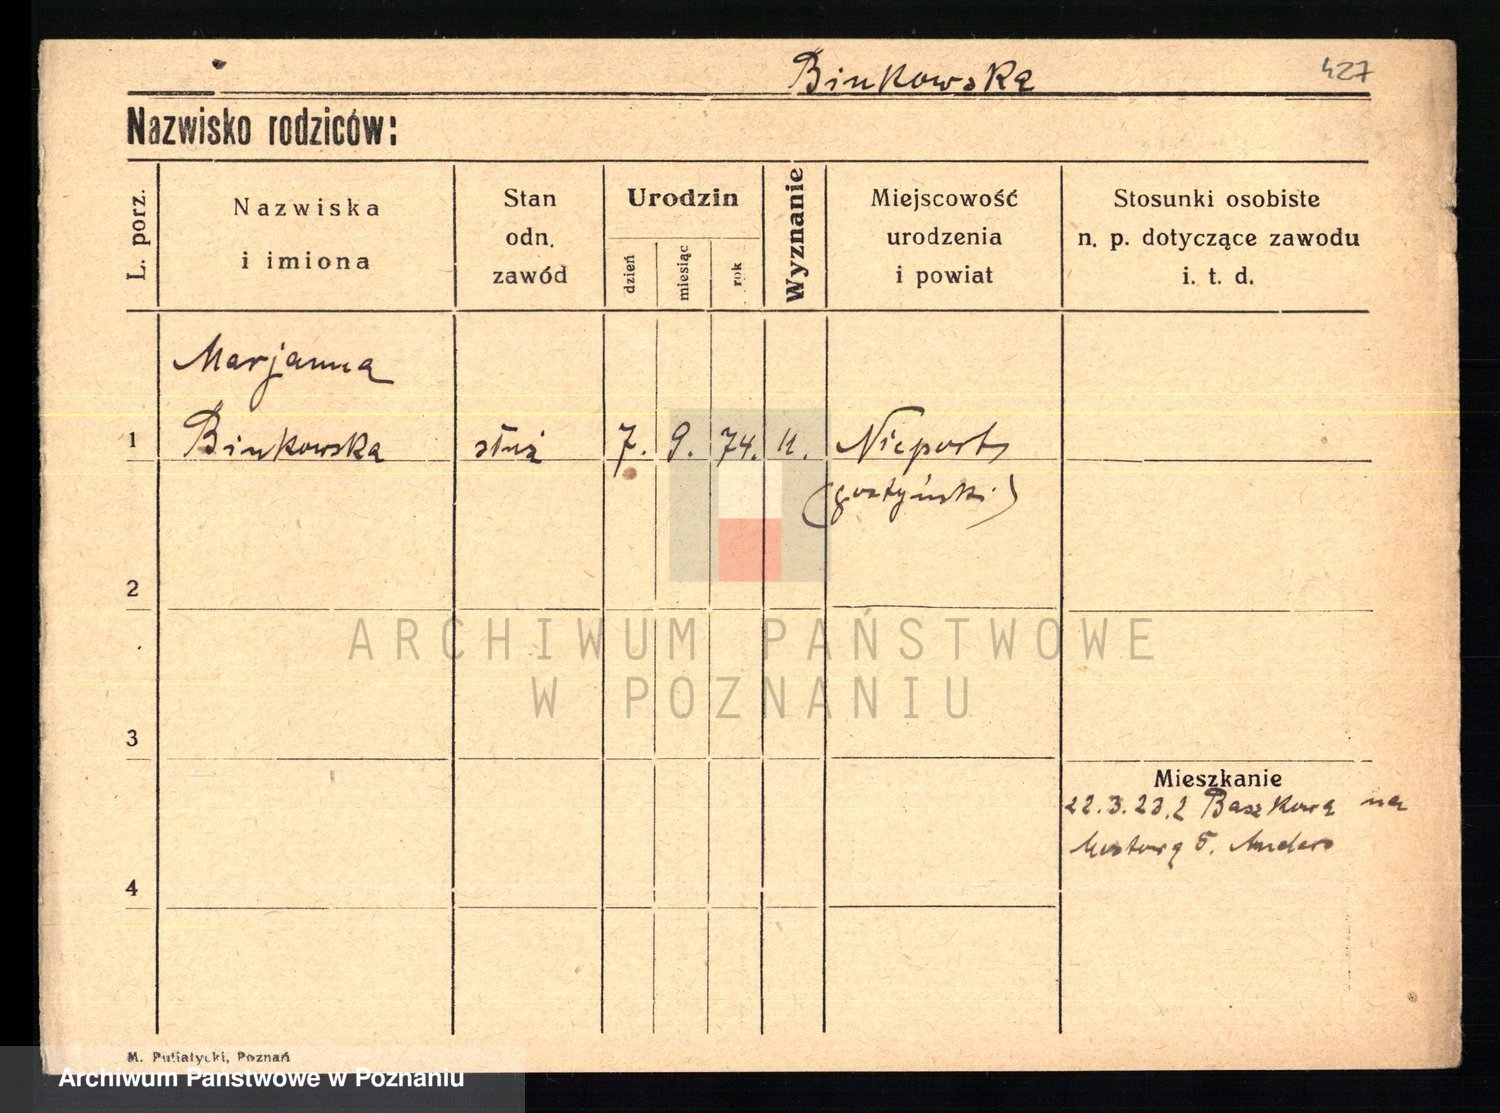 Binkowska
427
Nazwisko rodziców:
L. porz.
Nazwiska
i imiona
Stan
odn.
zawód
Urodzin
dzień
miesiąc
rok
Wyznanie
Miejscowość
urodzenia
i powiat
Stosunki osobiste
n. p. dotyczące zawodu
i. t. d.
Marjanna
1 Binkowska służ 7. 9. 74. k. Niepart
(gostyński)
2
ARCHIWUM PAŃSTWOWE
W POZNANIU
3
Mieszkanie
22.3.23. z Baszkowa na
5.
4
M. Putiatycki, Poznań
Archiwum Państwowe w Poznaniu